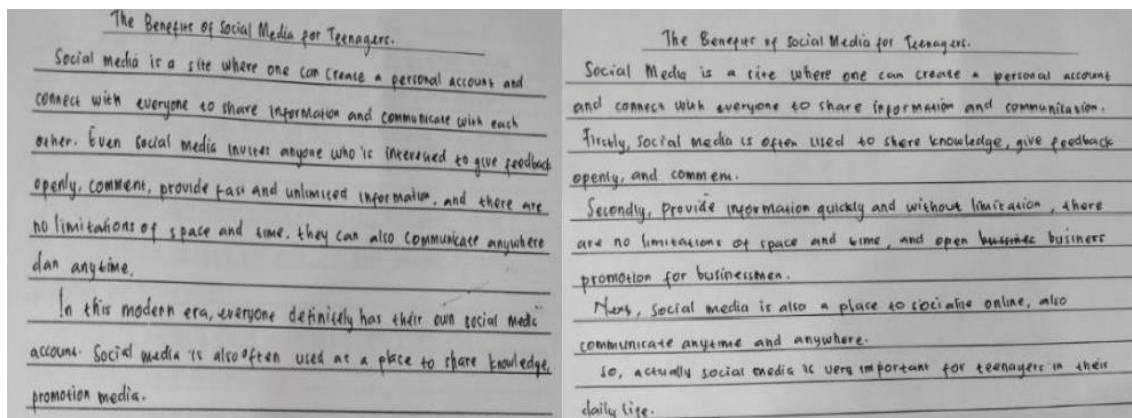 The Benefits of Social Media for Teenagers.
Social media is a site where one can create a personal account and
connect with everyone to share information and communicate with each
other. Even social media invites anyone who is interested to give feedback
openly, comment, provide fast and unlimited information, and there are
no limitations of space and time. they can also communicate anywhere
dan anytime.
In this modern era, everyone definitely has their own social media
account. Social media is also often used as a place to share knowledge,
promotion media.
The Benefits of Social Media for Teenagers.
Social Media is a site where one can create a personal account
and connect with everyone to share information and communication.
Firstly, social media is often used to share knowledge, give feedback
openly, and comment.
Secondly, provide information quickly and without limitation, there
are no limitations of space and time, and open business
promotion for businessmen.
Next, social media is also a place to socialise online, also
communicate anytime and anywhere.
so, actually social media is very important for teenagers in their
daily life.